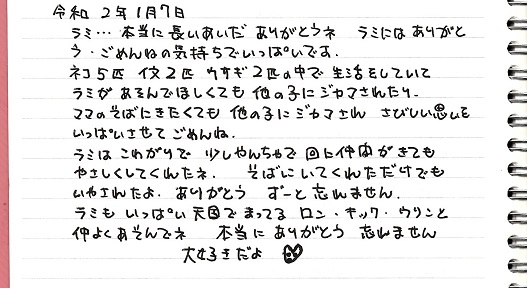 令和 2年1月7日
ラミ… 本当に長いあいだ ありがとうネ ラミにはありがと
う・ごめんねの気持ちでいっぱいです.
ネコ5匹 イヌ2匹 ウサギ2匹の中で 生活をしていて
ラミが あそんでほしくても 他の子にジャマされたり.
ママのそばにきたくても 他の子にジャマされ さびしい思いを
いっぱいさせて ごめんね.
ラミは こわがりで 少しやんちゃで 回に仲間がきても
やさしくしてくれたネ. そばにいてくれただけでも
いやされたよ. ありがとう ずーと忘れません.
ラミも いっぱい 天国で まってる ロン・キック・ウリンと
仲よくあそんでネ 本当に ありがとう 忘れません
大好きだよ